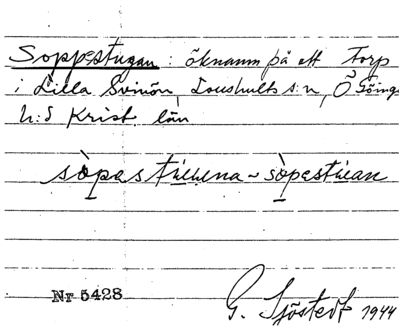 Soppestugan : öknamn på ett torp
i Lilla Svinön, Loushults s:n, Ö Göinge
h:d Krist. län
sòpastuena ~ sòpastúan
Nr 5428
G. Sjöstedt 1944